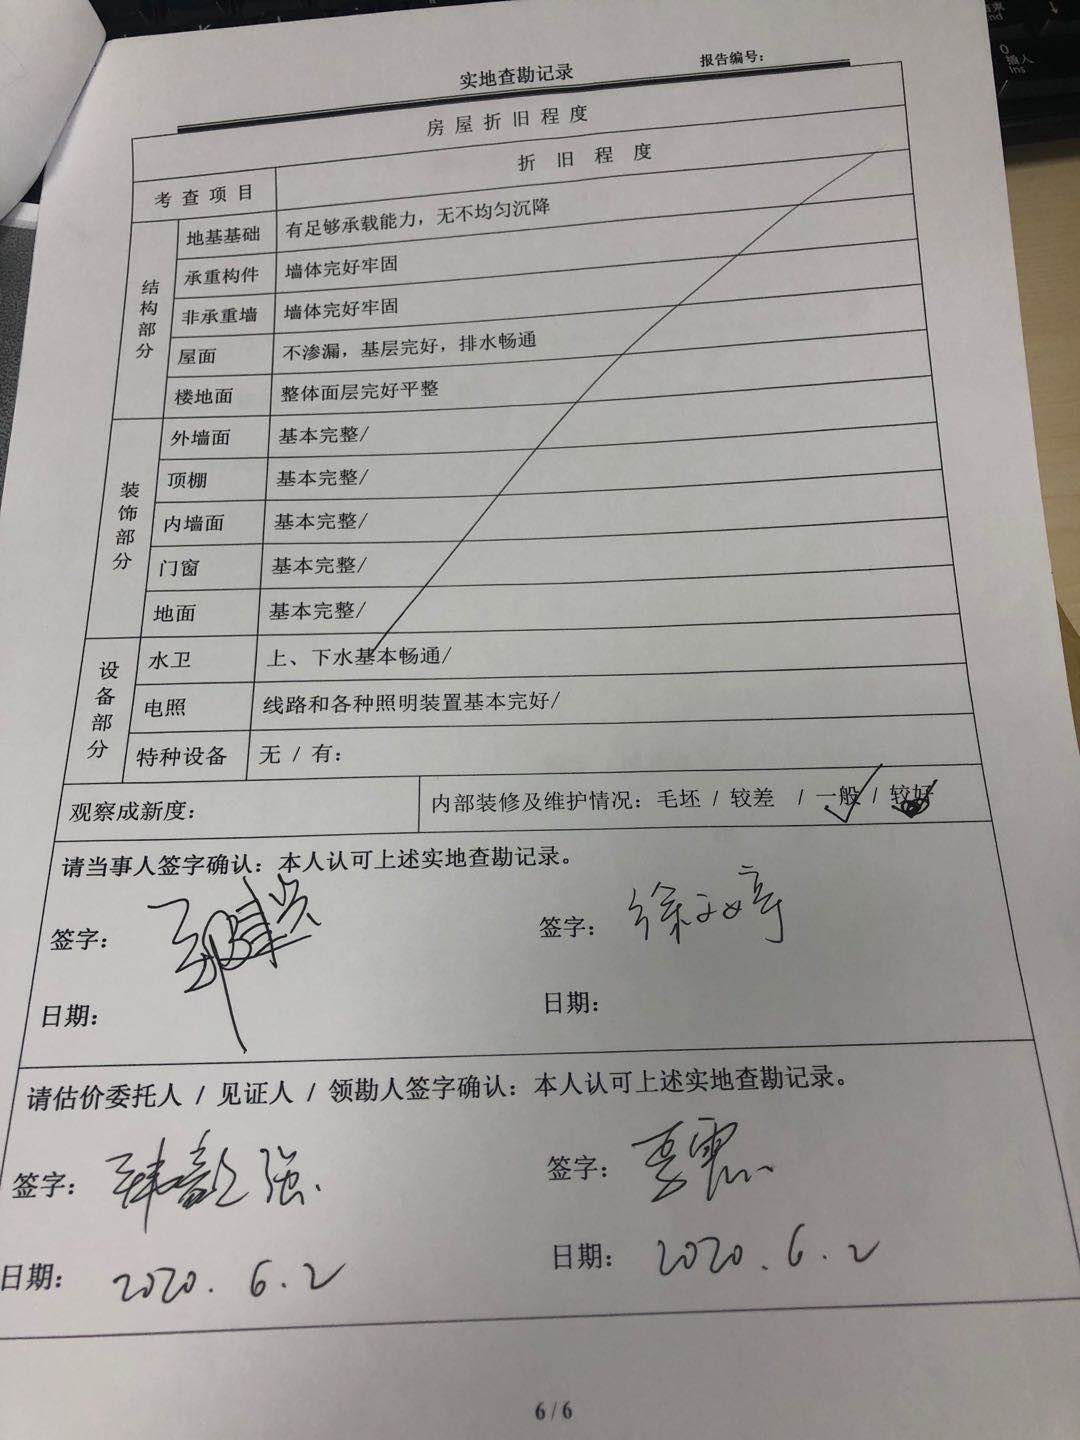 实地查勘记录
报告编号：
房屋折旧程度
考查项目 折旧程度
结构部分
地基基础 有足够承载能力，无不均匀沉降
承重构件 墙体完好牢固
非承重墙 墙体完好牢固
屋面 不渗漏，基层完好，排水畅通
楼地面 整体面层完好平整
装饰部分
外墙面 基本完整/
顶棚 基本完整/
内墙面 基本完整/
门窗 基本完整/
地面 基本完整/
设备部分
水卫 上、下水基本畅通/
电照 线路和各种照明装置基本完好/
特种设备 无 / 有：
观察成新度： 内部装修及维护情况：毛坯 / 较差 / 一般 / 较好
请当事人签字确认：本人认可上述实地查勘记录。
签字： 签字：徐文婷
日期： 日期：
请估价委托人 / 见证人 / 领勘人签字确认：本人认可上述实地查勘记录。
签字： 签字：
日期：2020.6.2 日期：2020.6.2
6/6